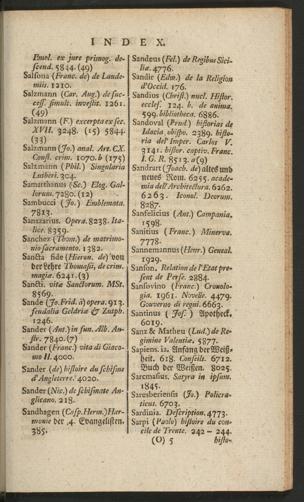 INDEX.
Pinel. ex jure primog. de-
scend. 5844. (49)
Salsona (Franc. de) de Laude-
miis. 1210.
Salzmann (Car. Aug.) de suc-
cess. simult. investit. 1261.
(49)
Salzmann (F.) excerpta ex sec.
XVII. 3248. (15) 5844.
(33)
Salzmann (Jo.) anal. Art. CX.
Const. crim. 1070. b (175)
Salzmann (Phil.) Singularia
Lutheri. 304.
Samarthanus (Sc.) Elog. Gal-
lorum. 7280. (12)
Sambucci (Jo.) Emblemata.
7813.
Sannazarius. Opera. 8238. Ita-
lice. 8359.
Sanchez (Thom.) de matrimo-
nio sacramento. 1382.
Sancta fide (Hieron. de) von
der Lehre Thomasii, de crim.
magiæ. 6241. (3)
Sancti. vitæ Sanctorum. MSt.
8569.
Sande (Jo. Frid. à) opera. 913.
feudalia Geldriæ & Zutph.
1246.
Sander (Ant.) in fun. Alb. Au-
str. 7840. (7)
Sander (Franc.) vita di Giaco-
mo II. 4000.
Sander (de) histoire du schisme
d'Angleterre. 4020.
Sander (Nic.) de schismate An-
glicano. 218.
Sandhagen (Casp. Herm.) Har-
monie der 4. Evangelisten.
385.
Sandeus (Fel.) de Regibus Sici-
liæ. 4776.
Sandie (Edw.) de la Religion
d'Occid. 176.
Sandius (Christ.) nucl. Histor.
eccles. 124. b. de anima.
599. bibliotheca. 6886.
Sandoval (Prud.) historias de
Idacio obispo. 2389. histo-
ria del Imper. Carlos V.
3141. histor. captiv. Franc.
I. G. R. 8513. a (9)
Sandrart (Joach. de) altes und
neues Rom. 6255. acade-
mia dell'Architettura. 6262.
6263. Iconol. Deorum.
8287.
Sanfelicius (Ant.) Campania.
1598.
Sanitius (Franc.) Minerva.
7778.
Sannemannus (Henr.) Geneal.
1929.
Sanson. Relation de l'Etat pre-
sent de Perse. 2884.
Sansovino (Franc.) Cronolo-
gia. 1961. Novelle. 4479.
Governo di regni. 6663.
Santinus (Jos.) Apotheck.
6019.
Sanz & Matheu (Lud.) de Re-
gimine Valentiæ. 5877.
Sapiens. ia. Anfang der Weiß-
heit. 618. Conseils. 6712.
Buch der Weisen. 8025.
Sarcmasius. Satyra in ipsum.
1845.
Saresberiensis (Jo.) Policra-
ticus. 6703.
Sardinia. Description. 4773.
Sarpi (Paolo) histoire du con-
cile de Trente. 242 — 244.
(O) 5
histo-